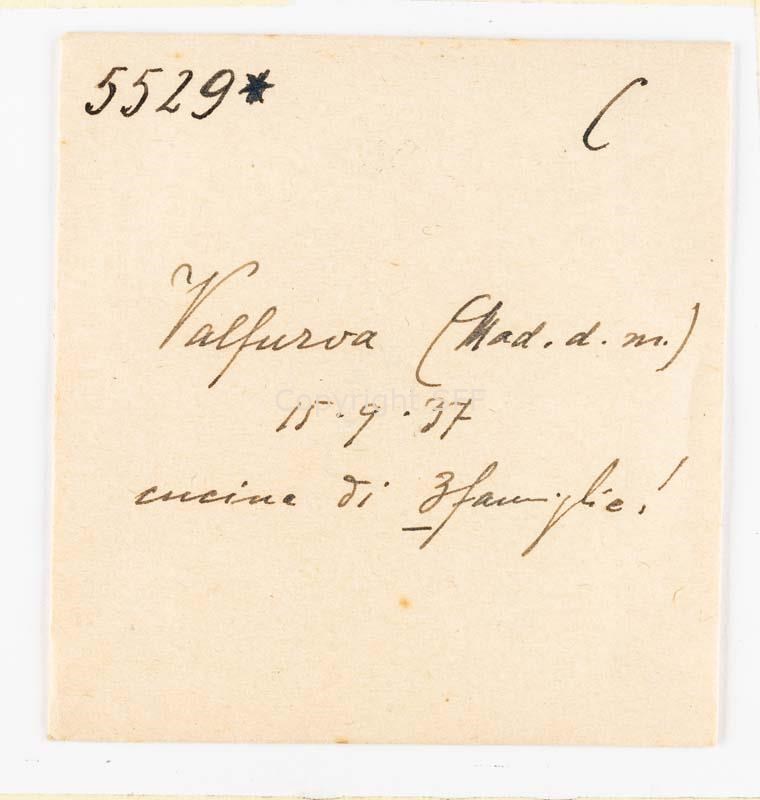 5529* C
Valfurva (Mad. d. m.)
Copyright SEF
15.9.37
cucina di 3 famiglie!